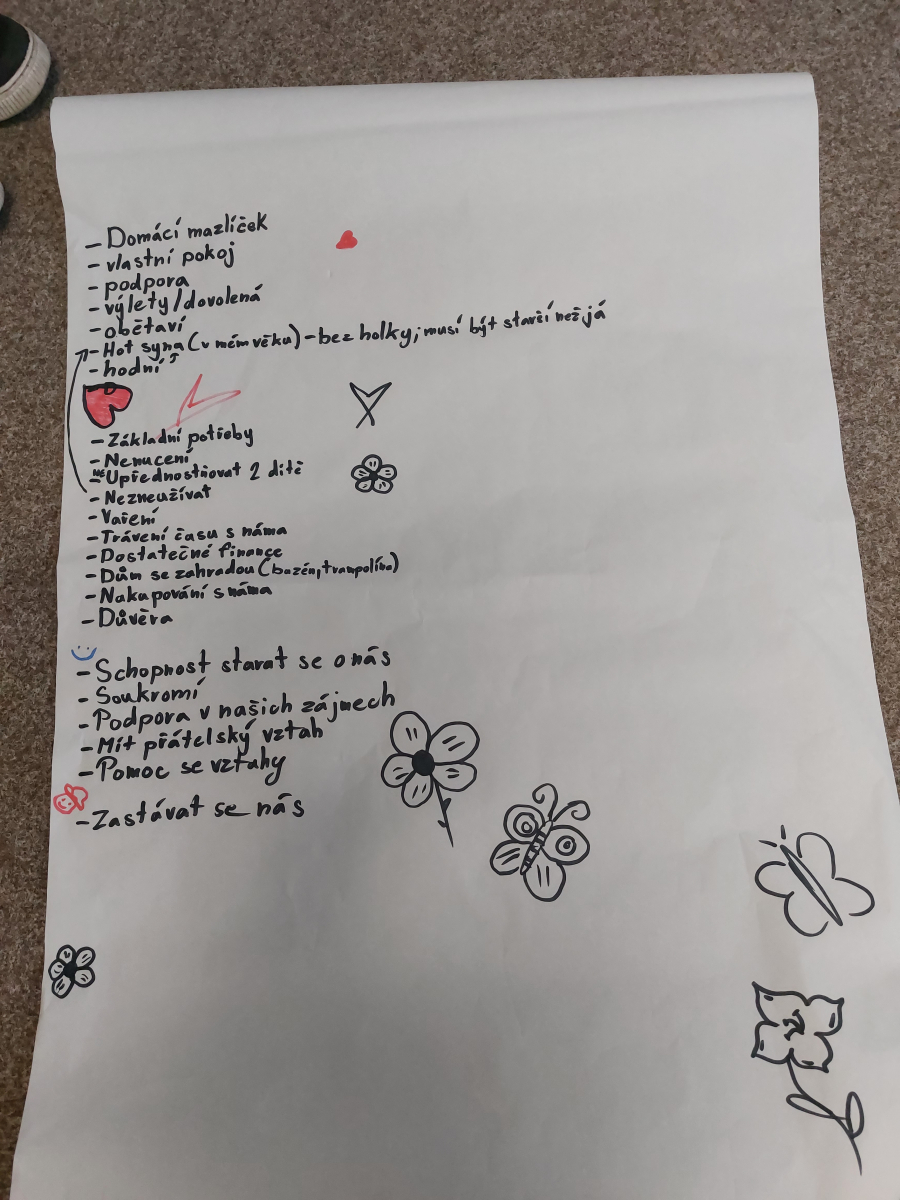 - Domácí mazlíček
- vlastní pokoj
- podpora
- výlety/dovolená
- obětaví
- Hot syna (v mém věku) - bez holky, musí být starší než já
- hodní
- Základní potřeby
- Nenucení
- Ne Upřednostňovat 2 dítě
- Nezneužívat
- Vaření
- Trávení času s náma
- Dostatečné finance
- Dům se zahradou (bazén, trampolína)
- Nakupování s náma
- Důvěra
- Schopnost starat se o nás
- Soukromí
- Podpora v našich zájmech
- Mít přátelský vztah
- Pomoc se vztahy
- Zastávat se nás